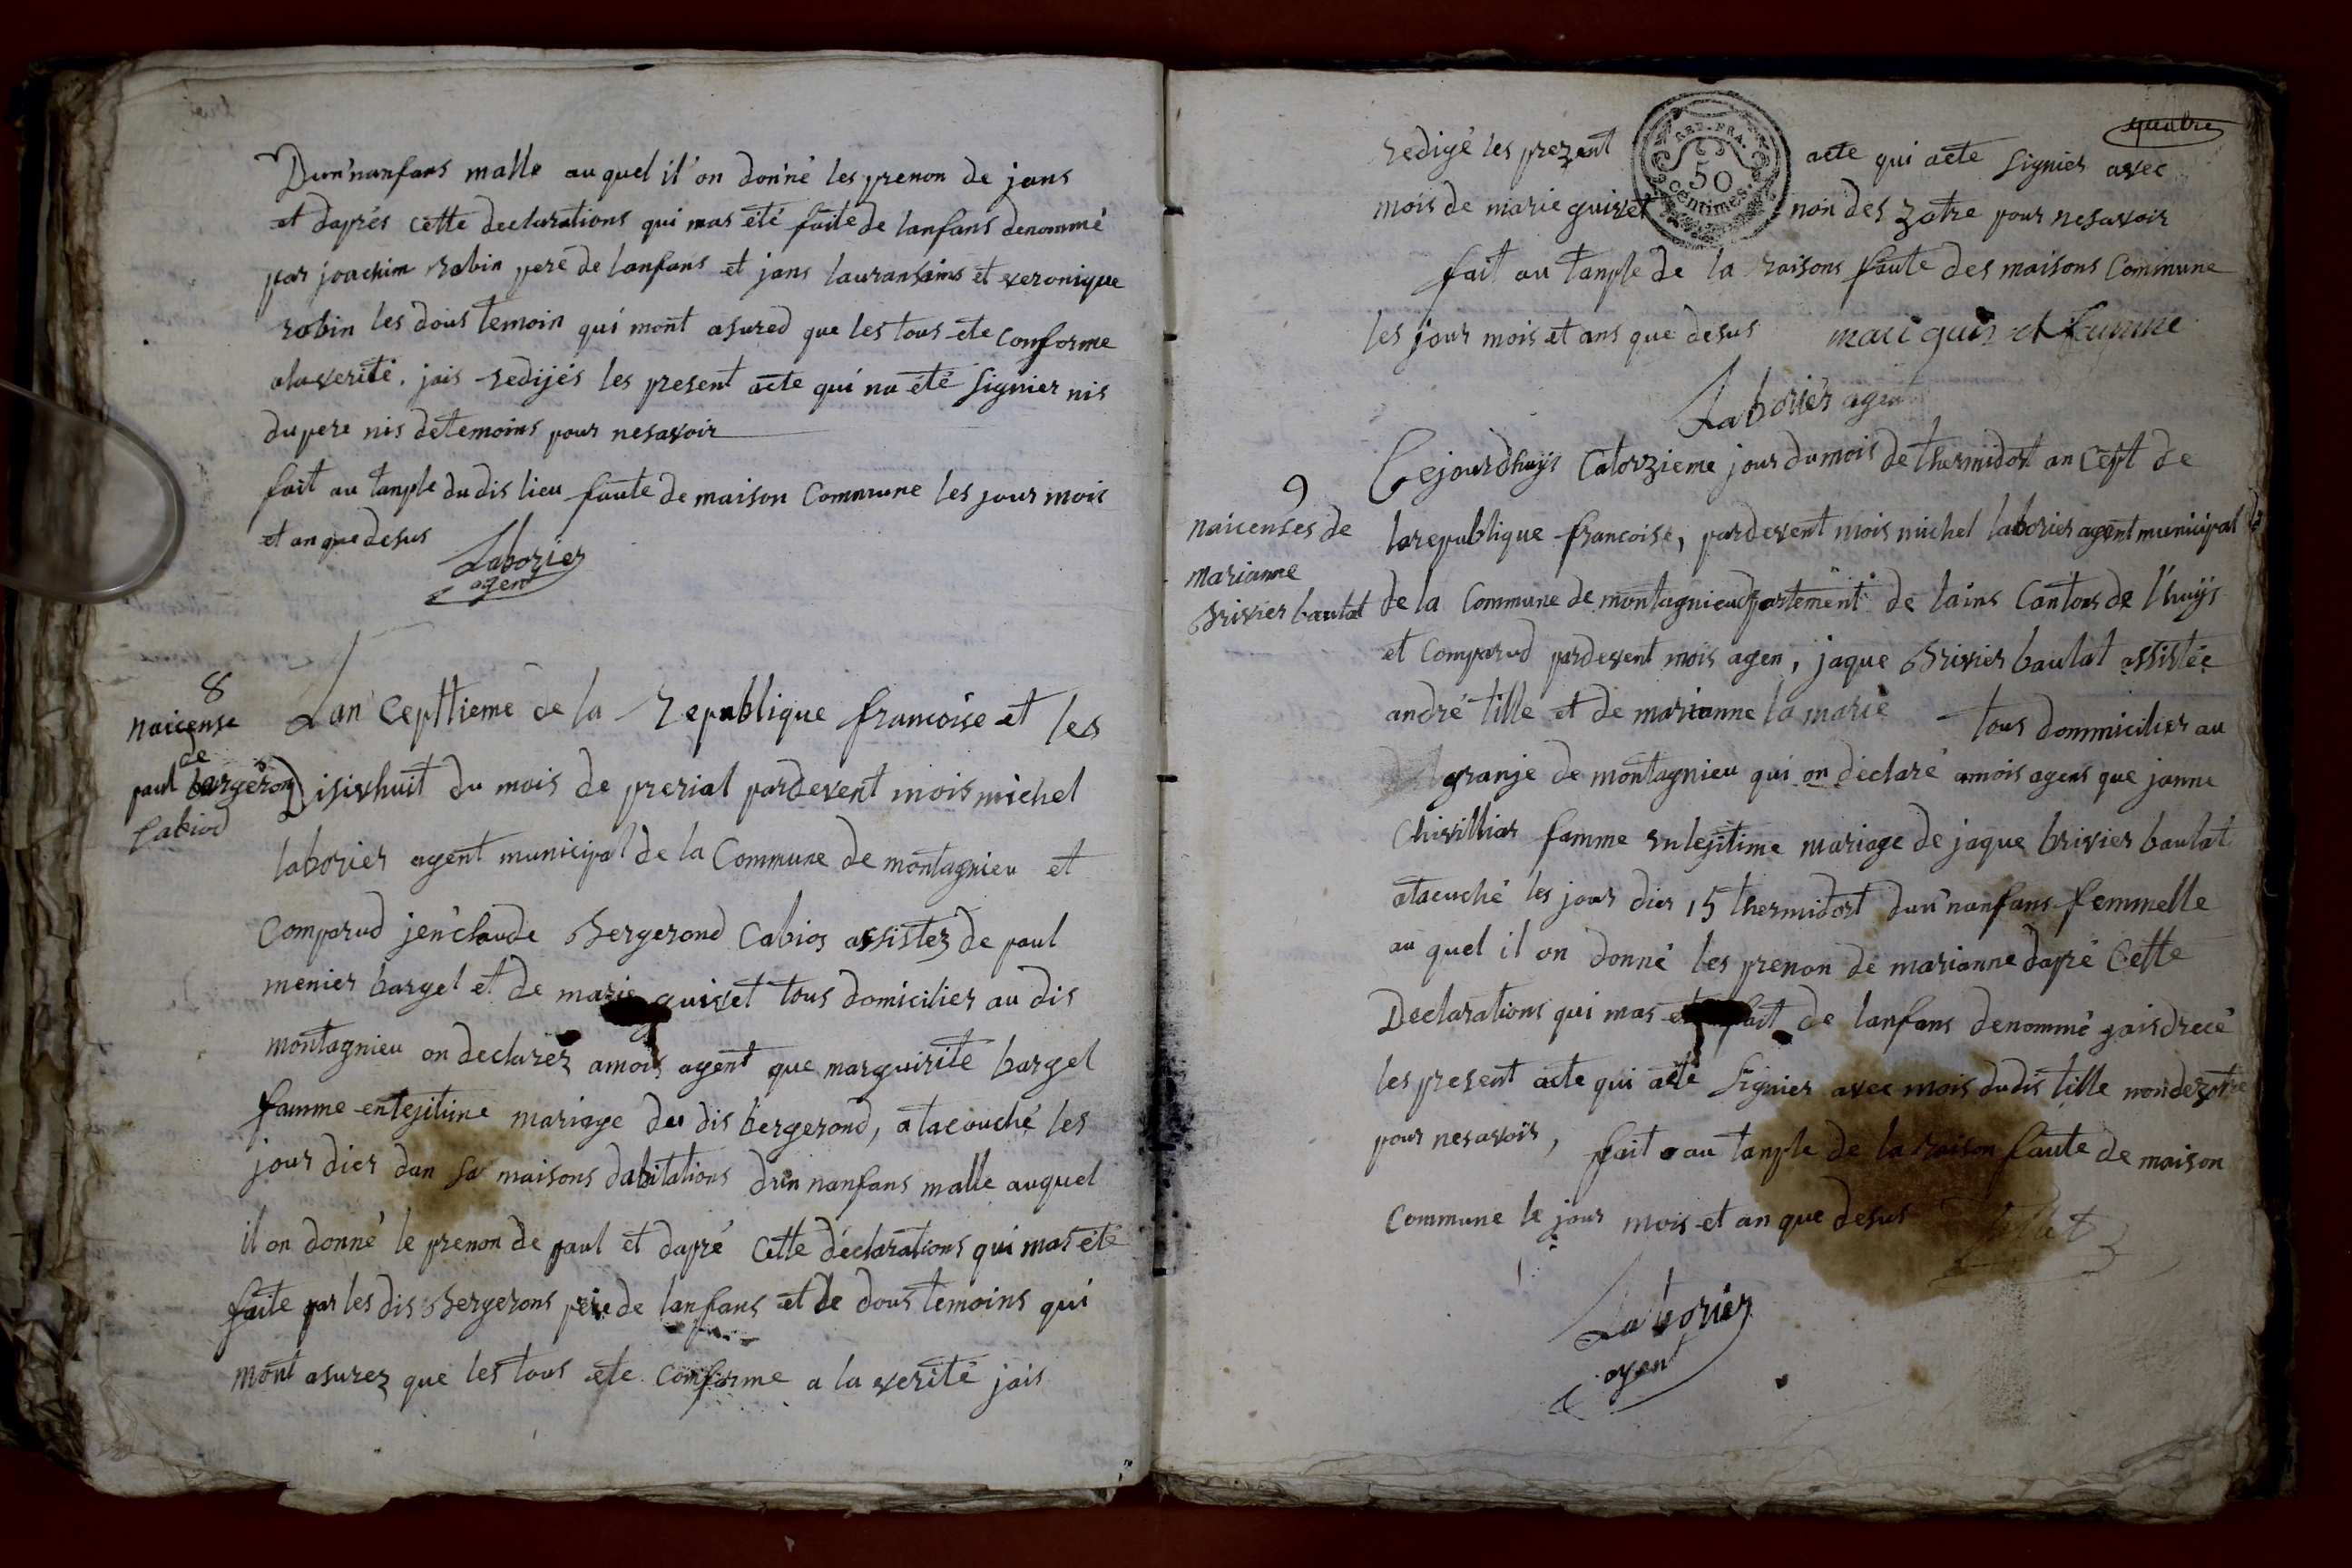 Dun'nanfans malle au quel il'on donné les prenon de jans
et daprés cette declarations qui mas été faite de lanfans denommé
par joachim robin peré de lanfans et jans lauransains et veronique
robin les dous temoin qui mont asured que les tous ete conforme
ala verité. jais redijés les present acte qui na été signier nis
du pere nis detemoins pour nesavoir
fait au tanple du dis lieu faute de maison Commune les jour mois
et an que desus
Laborier
agent
8
naicense
de
paul bargerond
Cabiod
Lan Cepttieme de la Republique francoise et les
Disixhuit du mois de prerial pardevent mois michel
laborier agent municipal de la Commune de montagnieu et
Comparud jen'claude Bergerond Cabios assistez de paul
menier bargel et de marie guivet tous domicilier au dis
montagnieu on declarez amois agent que marguirite bargel
famme enlejitime mariage du dis bergerond, atacouché les
jour dier dan sa maisons dabitations dun nanfans malle auquel
il on donné le prenon de paul et dapré Cette déclarations qui mas été
faite par les dis Bergerons pere de lanfans et de dous temoins qui
mont asurez que les tous ete conforme a la verité jais
quatre
redigé les prezent acte qui aete signier avec
REP. FRA.
50
centimes.
mois de marie guivet non des zotre pour nesavoir
fait au tanple de la raisons faute des maisons Commune
les jour mois et ans que desus
Laborier agent
9
naicenses de
marianne
Brivier baulat
Cejourdhuys Catorzieme jour du mois de thermidort an Cept de
larepublique francoise, pardevent mois michel laborier agent municipal
de la Commune de montagnieu departement de lains Cantons de l'huys
et Comparud pardevent mois agen, jaque Brivier baulat assistée
andré tille et de marianne la marie tous dommicilier au
granje de montagnieu qui on déclaré amois agens que janne
Chivilliar famme enlejitime mariage de jaque brivier baulat
atacuché les jour dier 15 thermidort dun'nanfans femmelle
au quel il on donné les prenon de marianne dapré Cette
Declarations qui mas fait de lanfans denommé jaisdrecé
les present acte qui aeté signier avec mois dudis tille nondezotre
pour nesavoir, fait au tanple de la raison faute de maison
Commune le jour mois et an que desus
Laborier
agent